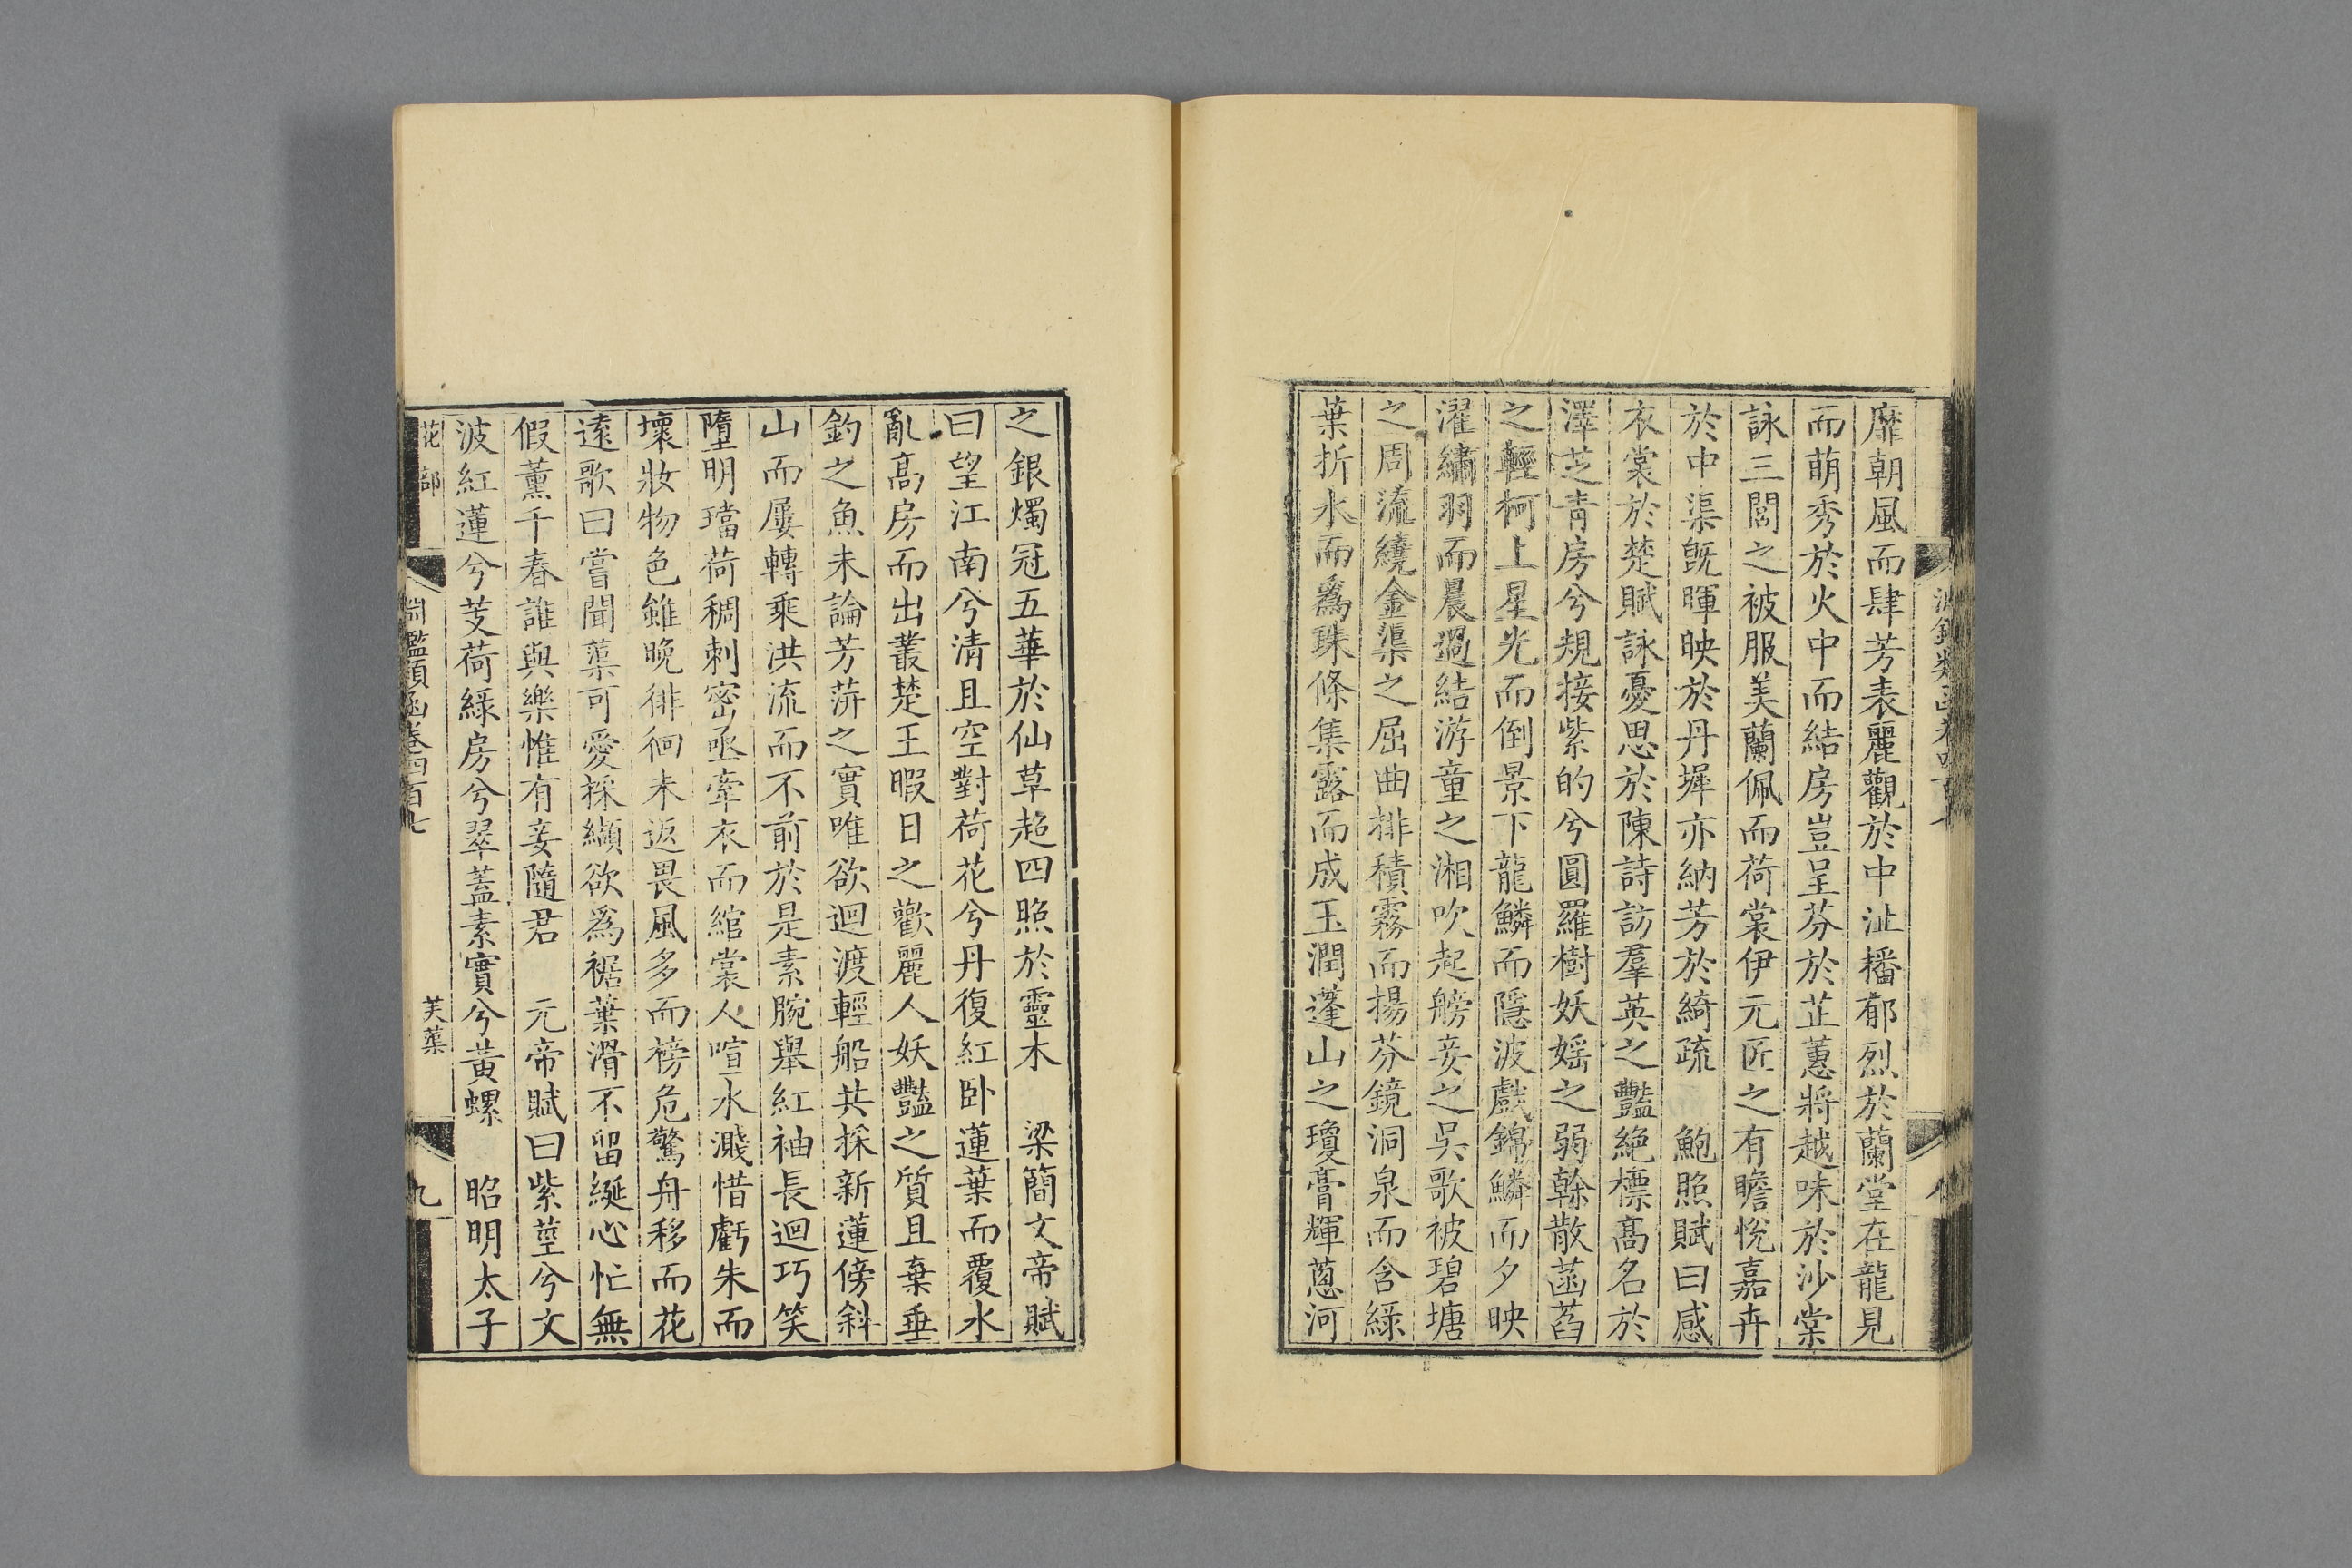 靡朝風而肆芳表麗觀於中沚播郁烈於蘭堂在龍見
而萌秀於火中而結房豈呈芬於芷蕙將越味於沙棠
詠三閭之被服美蘭佩而荷裳伊元匠之有瞻悅嘉卉
於中渠旣暉映於丹墀亦納芳於綺疏　鮑照賦曰感
衣裳於楚賦詠憂思於陳詩訪羣英之豔絶標髙名於
澤芝青房兮規接紫的兮圓羅樹妖媱之弱幹散菡萏
之輕柯上星光而倒景下龍鱗而隱波戲錦鱗而夕映
濯繡羽而晨過結游童之湘吹起艕妾之吳歌被碧塘
之周流繞金渠之屈曲排積霧而揚芬鏡洞泉而含綠
葉折水而爲珠條集露而成玉潤蓬山之瓊膏輝蔥河
之銀燭冠五華於仙草超四照於靈木　梁簡文帝賦
曰望江南兮清且空對荷花兮丹復紅卧蓮葉而覆水
亂髙房而出叢楚王暇日之歡麗人妖豔之質且棄垂
釣之魚未論芳蓱之實唯欲迴渡輕船共採新蓮傍斜
山而屢轉乘洪流而不前於是素腕舉紅袖長迴巧笑
墮明璫荷稠刺密亟牽衣而綰裳人喧水濺惜虧朱而
壞妝物色雖晚徘徊未返畏風多而榜危驚舟移而花
遠歌曰嘗聞蕖可愛採纈欲爲裾葉滑不留綖心忙無
假薰千春誰與樂惟有妾隨君　元帝賦曰紫莖兮文
波紅蓮兮芰荷綠房兮翠蓋素實兮黃螺　昭明太子
花部　淵鑑類函卷四百七　芙蕖　九